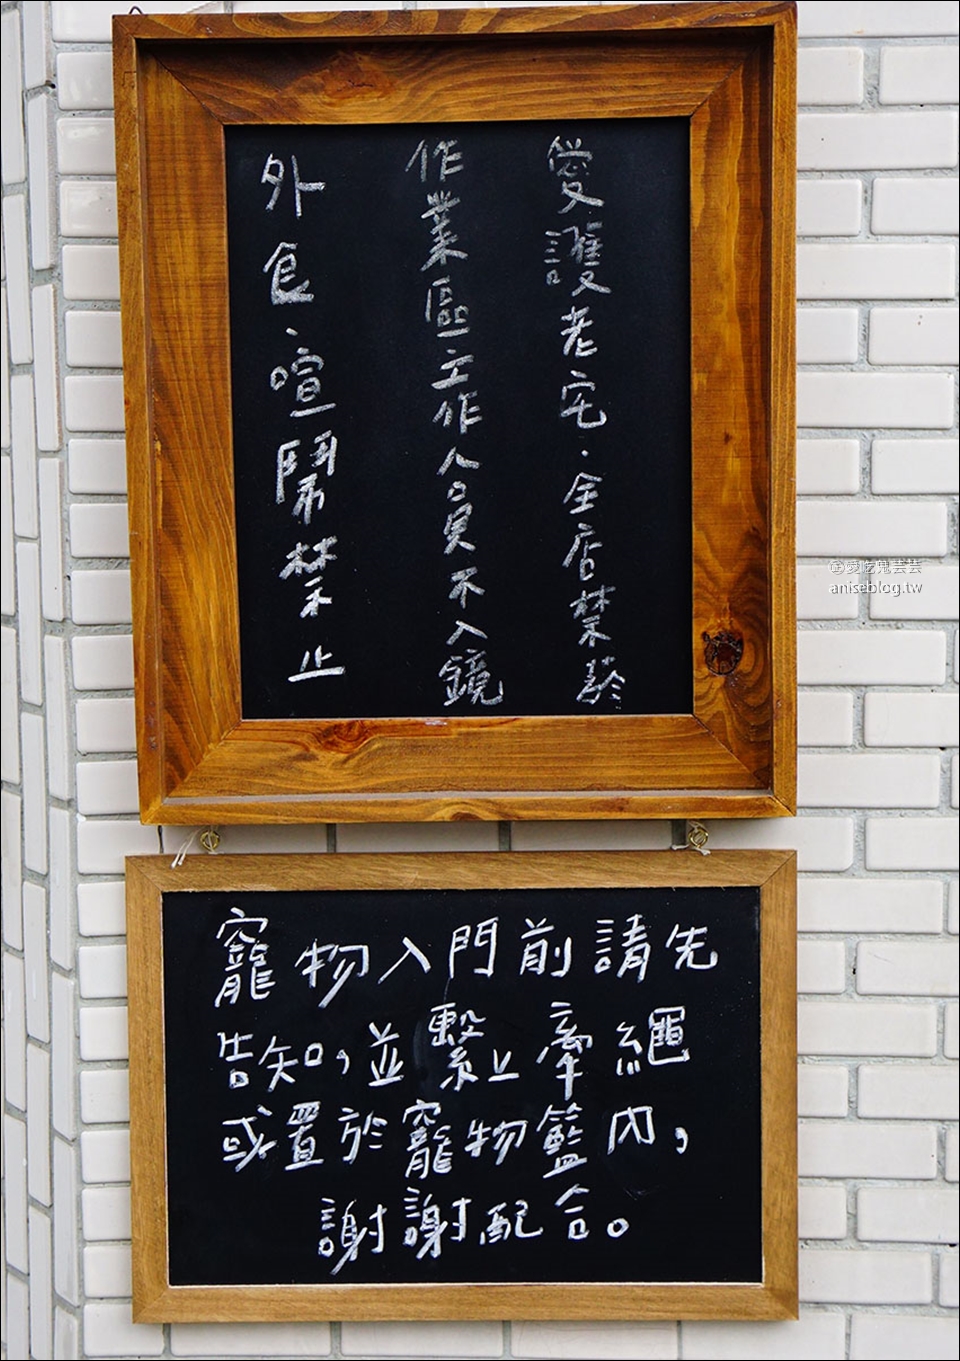 愛護老宅·全店禁菸
作業區工作人員不入鏡
外食、喧鬧禁止
寵物入門前請先
告知,並繫上牽繩
或置於寵物籃內,
謝謝配合。
愛吃鬼芸芸
aniseblog.tw